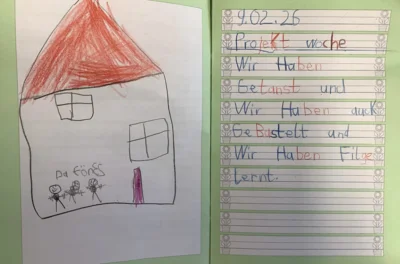 9.02.26
Projekt woche
Wir Haben
Getanst und
Wir Haben auch
GeBastelt und
Wir Haben Filge
Lernt.